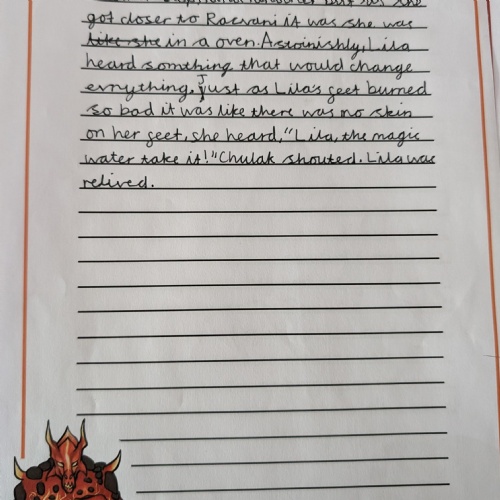 but as she
got closer to Raevani it was she was
like she in a oven. Astoinishly, Lila
heard something that would change
errything. Just as Lila's feet burned
so bad it was like there was no skin
on her feet, she heard, "Lila, the magic
water take it!" Chulak shouted. Lila was
relived.